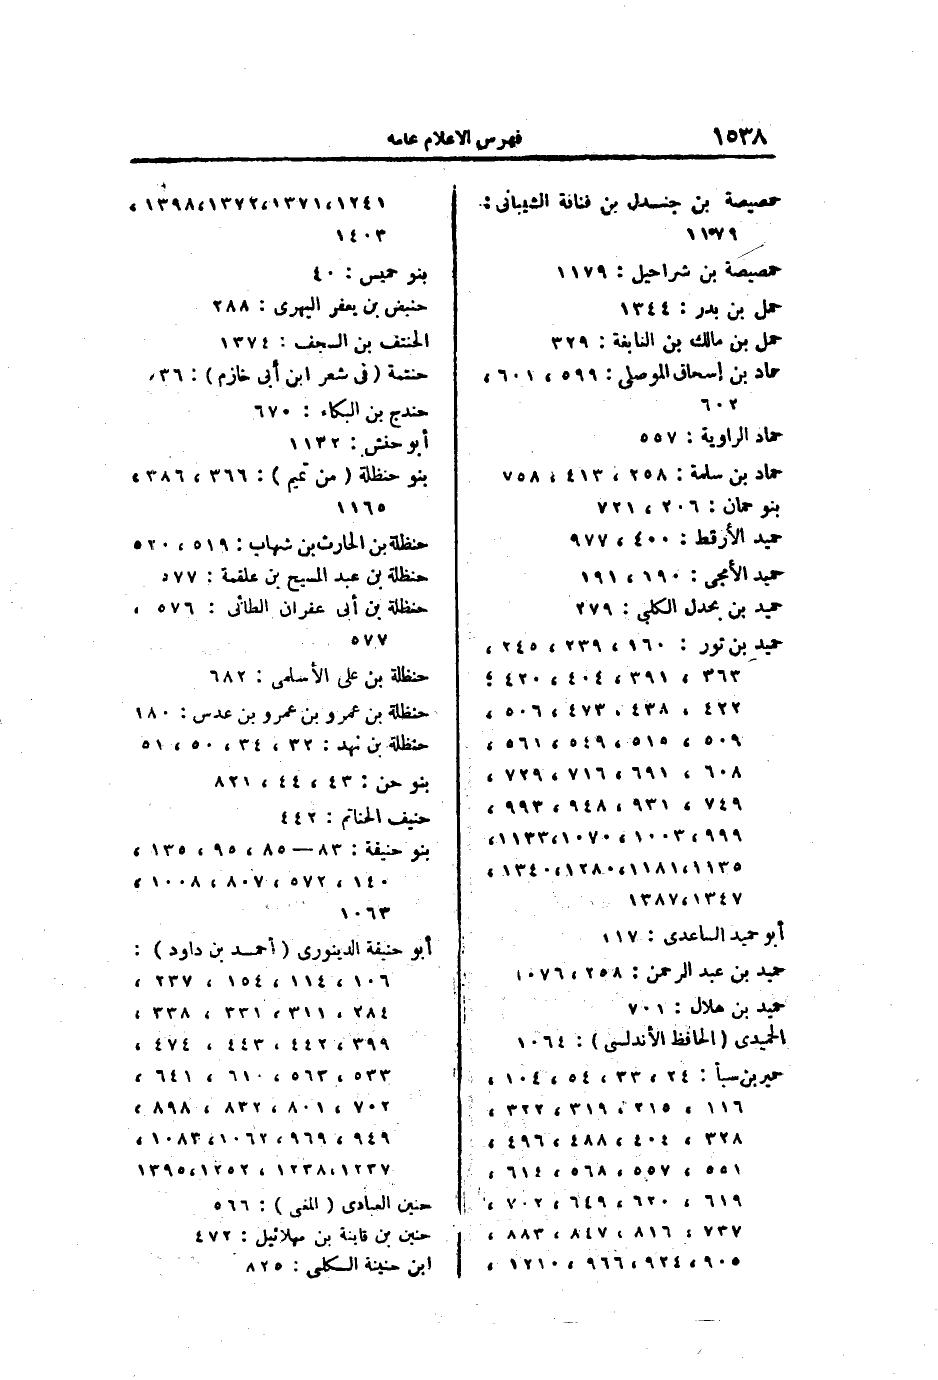 ١٥٣٨
فهرس الأعلام عامه
حمصيصة بن جنـدل بن قنافة الشيبانى :
١١٧٩
حمصيصة بن شراحيل : ١١٧٩
حمل بن بدر : ١٣٤٤
حمل بن مالك بن النابغة : ٣٢٩
حماد بن إسحاق الموصلى : ٥٩٩ ، ٦٠١ ،
٦٠٢
حماد الراوية : ٥٥٧
حماد بن سلمة : ٢٥٨ ، ٤١٣ ، ٧٥٨
بنو حمان : ٢٠٦ ، ٧٢١
حميد الأرقط : ٤٠٠ ، ٩٧٧
حميد الأمجى : ١٩٠ ، ١٩١
حميد بن بحدل الكلبي : ٢٧٩
حميد بن ثور : ٩٦٠ ، ٢٣٩ ، ٢٤٥ ،
٣٦٣ ، ٣٩١ ، ٤٠٤ ، ٤٢٠ ؛
٤٢٢ ، ٤٣٨ ، ٤٧٣ ، ٥٠٦ ،
٥٠٩ ، ٥١٥ ، ٥٤٩ ، ٥٦١ ،
٦٠٨ ، ٦٩١ ، ٧١٦ ، ٧٢٩ ،
٧٤٩ ، ٩٣١ ، ٩٤٨ ، ٩٩٣ ،
٩٩٩ ، ١٠٠٣ ، ١٠٧٠،١١٣٣،
١١٣٥ ،١١٨١ ،١٢٨٠،١٣٤٠ ،
١٣٤٧،١٣٨٧
أبو حميد الساعدى : ١١٧
حميد بن عبد الرحمن : ٢٥٨ ، ١٠٧٦
حميد بن هلال : ٧٠١
الحميدى ( الحافظ الأندلسى ) : ١٠٦٤
حمير بن سبأ : ٢٤ ، ٣٣ ، ٥٤ ، ١٠٤ ،
١١٦ ، ٢١٥ ، ٣١٩ ، ٣٢٢ ،
٣٢٨ ، ٤٠٤ ، ٤٨٨ ، ٤٩٦ ،
٥٥١ ، ٥٥٧ ، ٥٦٨ ، ٦١٤ ،
٦١٩ ، ٦٢٠ ، ٦٤٩ ، ٧٠٢ ،
٧٣٧ ، ٨١٦ ، ٨٤٧ ، ٨٨٣ ،
٩٠٥ ، ٩٢٤ ، ٩٦٦ ، ١٢١٠ ،
١٢٤١ ،١٣٧١،١٣٧٢،١٣٩٨ ،
١٤٠٣
بنو حميس : ٤٠
حنبض بن يعفر اليهرى : ٢٨٨
الحنتف بن السجف : ١٣٧٤
حنتمة ( فى شعر ابن أبى خازم ) : ٣٦
حندج بن البكاء : ٦٧٠
أبو حنش : ١١٣٢
بنو حنظلة ( من تميم ) : ٣٦٦ ، ٣٨٦ ،
١١٦٥
حنظلة بن الحارث بن شهاب : ٥١٩ ، ٥٢٠
حنظلة بن عبد المسيح بن علقمة : ٥٧٧
حنظلة بن أبى عفران الطائى : ٥٧٦ ،
٥٧٧
حنظلة بن على الأسلمى : ٦٨٢
حنظلة بن عمرو بن عمرو بن عدس : ١٨٠
حنظلة بن نهد : ٣٢ ، ٣٤ ، ٥٠ ، ٥١
بنو حن : ٤٣ ، ٤٤ ، ٨٢١
حنيف الحناتم : ٤٤٢
بنو حنيفة : ٨٣ – ٨٥ ، ٩٥ ، ١٣٥ ،
١٤٠ ، ٥٧٢ ، ٨٠٧ ، ١٠٠٨ ،
١٠٦٣
أبو حنيفة الدينورى ( أحمـد بن داود ) :
١٠٦ ، ١١٤ ، ١٥٤ ، ٢٣٧ ،
٢٨٤ ، ٣١١ ، ٣٣١ ، ٣٣٨ ،
٣٩٩ ، ٤٤٢ ، ٤٤٣ ، ٤٧٤ ،
٥٣٣ ، ٥٦٣ ، ٦١٠ ، ٦٤١ ،
٧٠٢ ، ٨٠١ ، ٨٣٢ ، ٨٩٨ ،
٩٤٩ ، ٩٦٩ ، ١٠٦٢ ،١٠٨٣ ،
١٢٣٧ ،١٢٣٨ ، ١٢٥٢ ،١٣٩٥
حنين العبادى ( المغنى ) : ٥٦٦
حنين بن قاينة بن مهلائيل : ٤٧٢
ابن حنينة الـكلبى : ٨٢٥